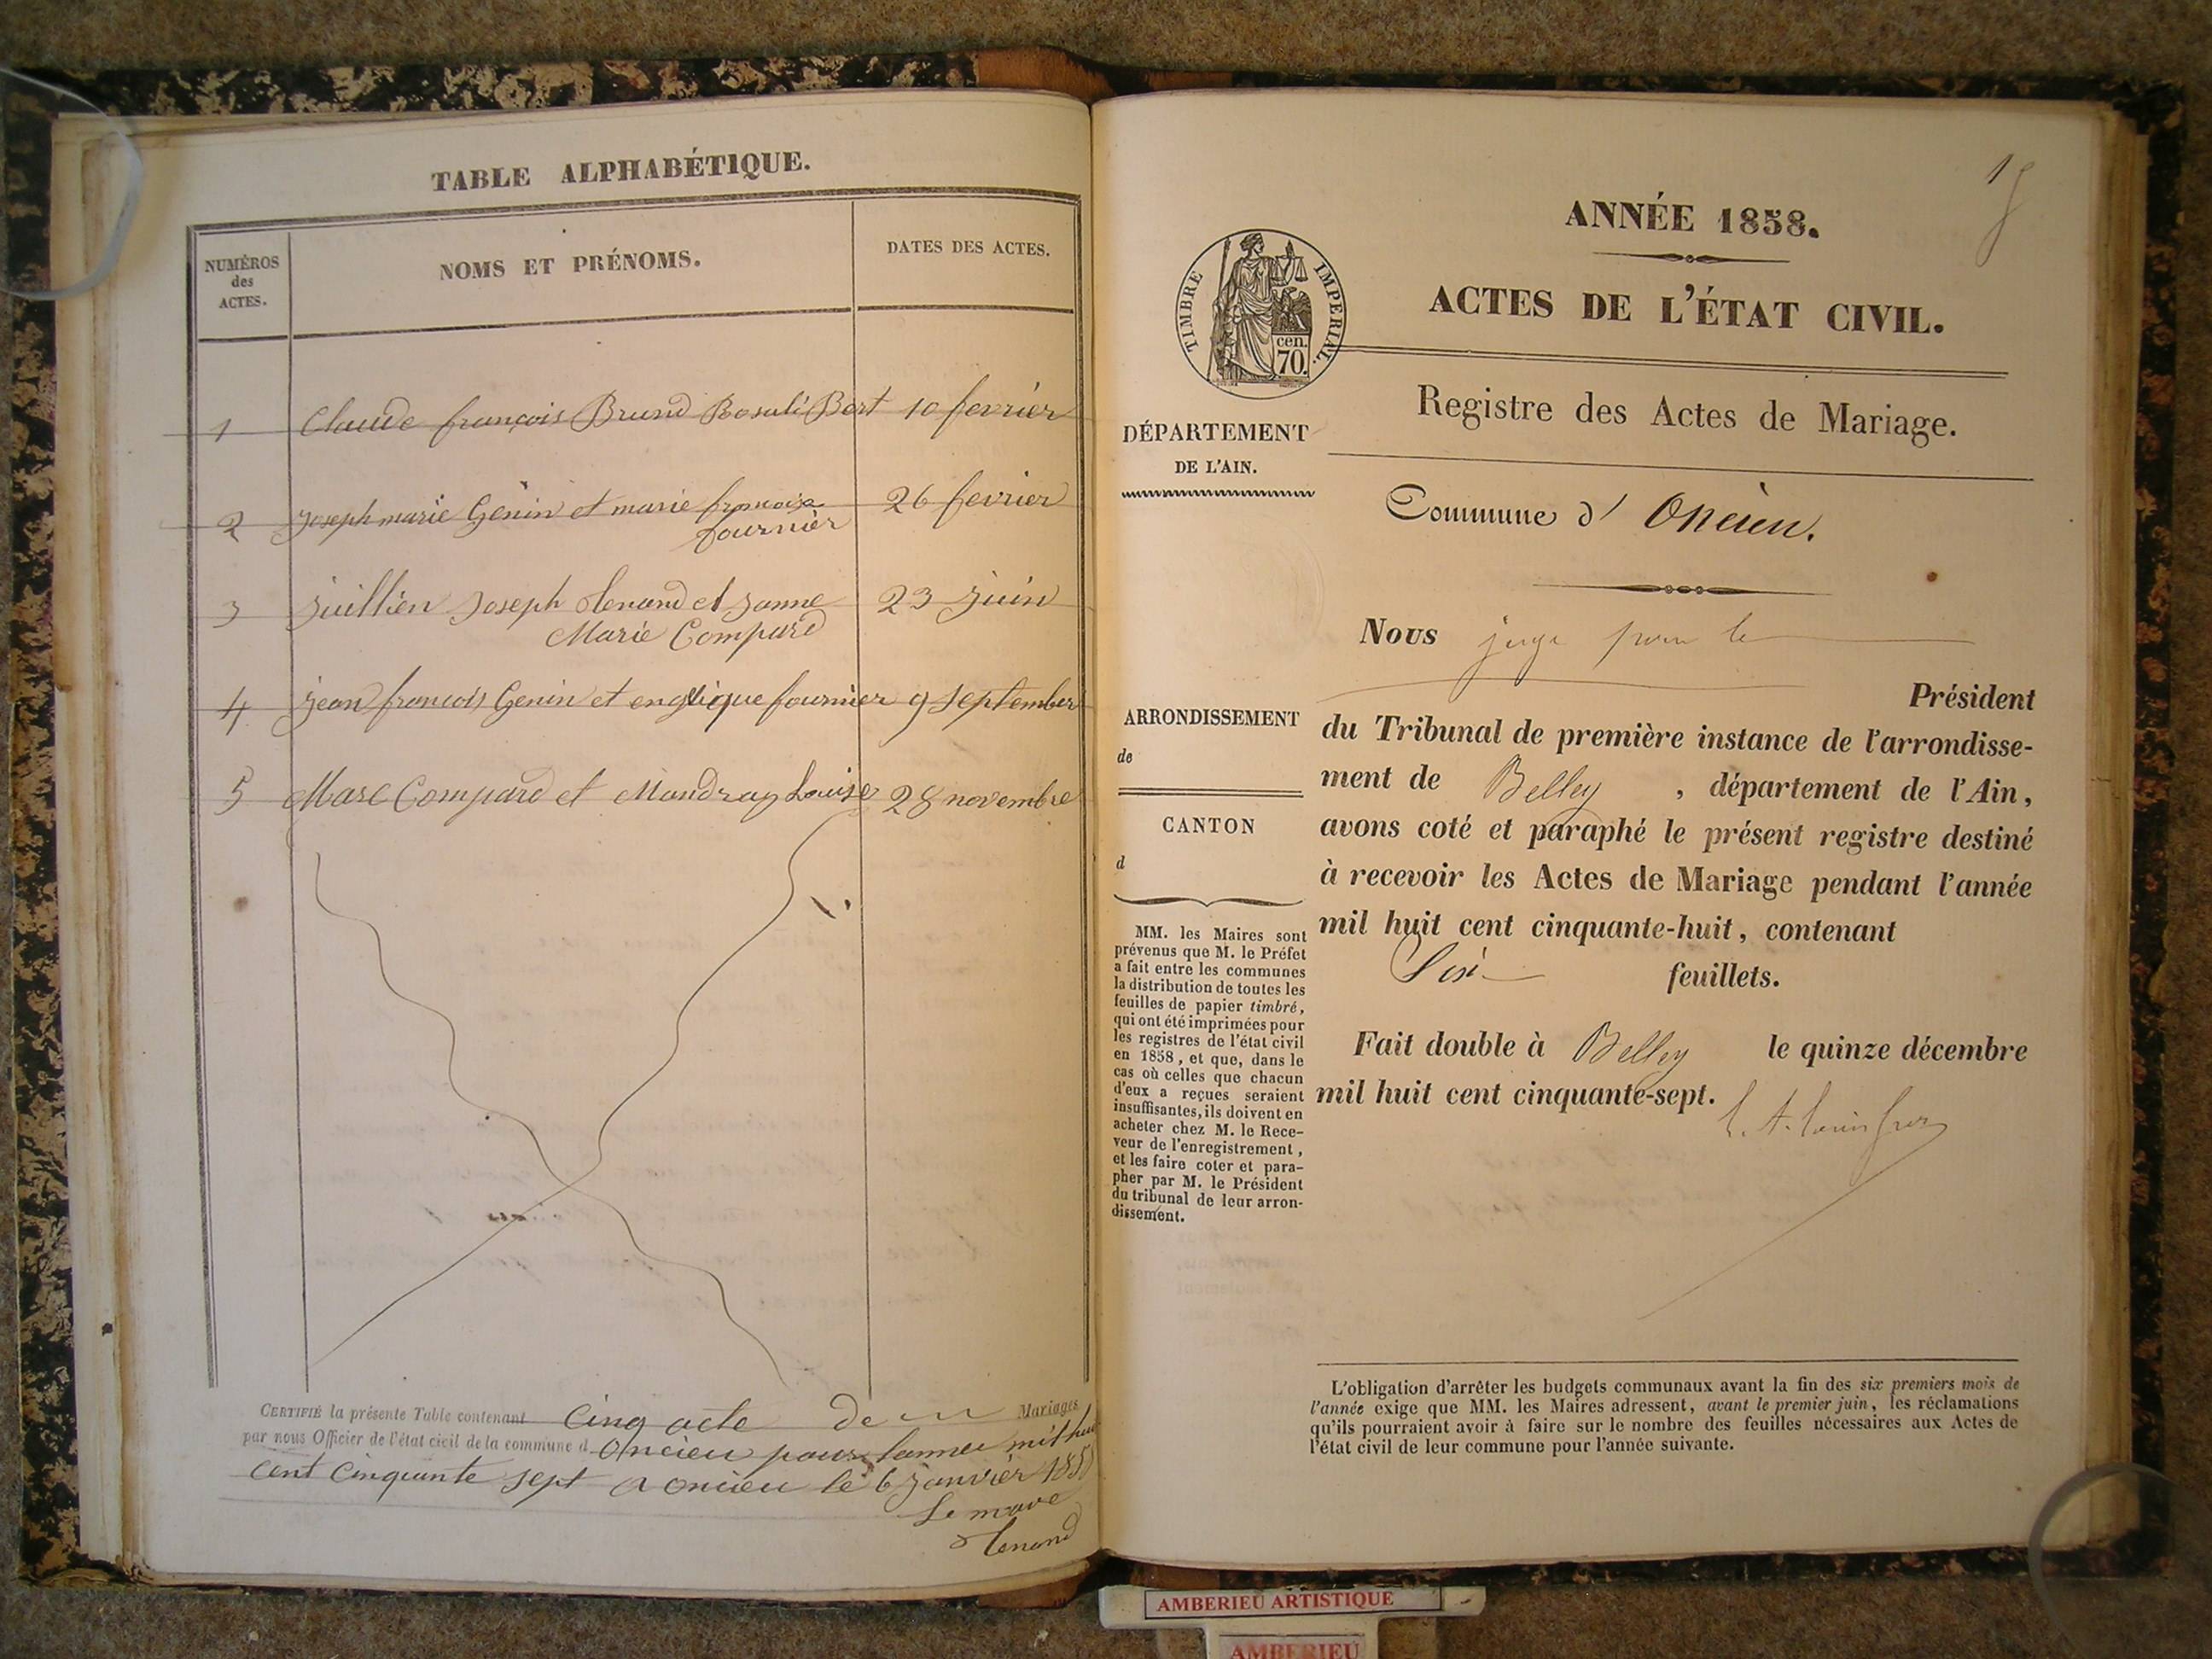 TABLE ALPHABÉTIQUE.
NUMÉROS
des
ACTES.
NOMS ET PRÉNOMS.
DATES DES ACTES.
1 Claude françois Brund Rosali Bert 10 fevrier
2 Joseph marie Genin et marie francoise 26 fevrier
fournier
3 juillien Joseph tenand et janne 23 juin
Marie Compard
4 jean francois Genin et fournier 9 september
5 Marc Compard et Mandray Louise 28 novembre
CERTIFIÉ la présente Table contenant cinq acte de Mariages
par nous Officier de l'état civil de la commune d oncieu pour lannee mil huit
cent cinquante sept a oncieu le 6 janvier 1858
Le maire
tenand
1
ANNÉE 1858.
ACTES DE L'ÉTAT CIVIL.
TIMBRE IMPERIAL.
cen.
70.
Registre des Actes de Mariage.
DÉPARTEMENT
DE L'AIN.
Commune d' Oncieu.
Nous juge pour le
Président
ARRONDISSEMENT
de
CANTON
d
du Tribunal de première instance de l'arrondisse-
ment de Belley, département de l'Ain,
avons coté et paraphé le présent registre destiné
à recevoir les Actes de Mariage pendant l'année
mil huit cent cinquante-huit, contenant
Six feuillets.
Fait double à Belley le quinze décembre
mil huit cent cinquante-sept.
MM. les Maires sont
prévenus que M. le Préfet
a fait entre les communes
la distribution de toutes les
feuilles de papier timbré,
qui ont été imprimées pour
les registres de l'état civil
en 1858, et que, dans le
cas où celles que chacun
d'eux a reçues seraient
insuffisantes, ils doivent en
acheter chez M. le Rece-
veur de l'enregistrement,
et les faire coter et para-
pher par M. le Président
du tribunal de leur arron-
dissement.
L'obligation d'arrêter les budgets communaux avant la fin des six premiers mois de
l'année exige que MM. les Maires adressent, avant le premier juin, les réclamations
qu'ils pourraient avoir à faire sur le nombre des feuilles nécessaires aux Actes de
l'état civil de leur commune pour l'année suivante.
AMBERIEU ARTISTIQUE
AMBERIEU